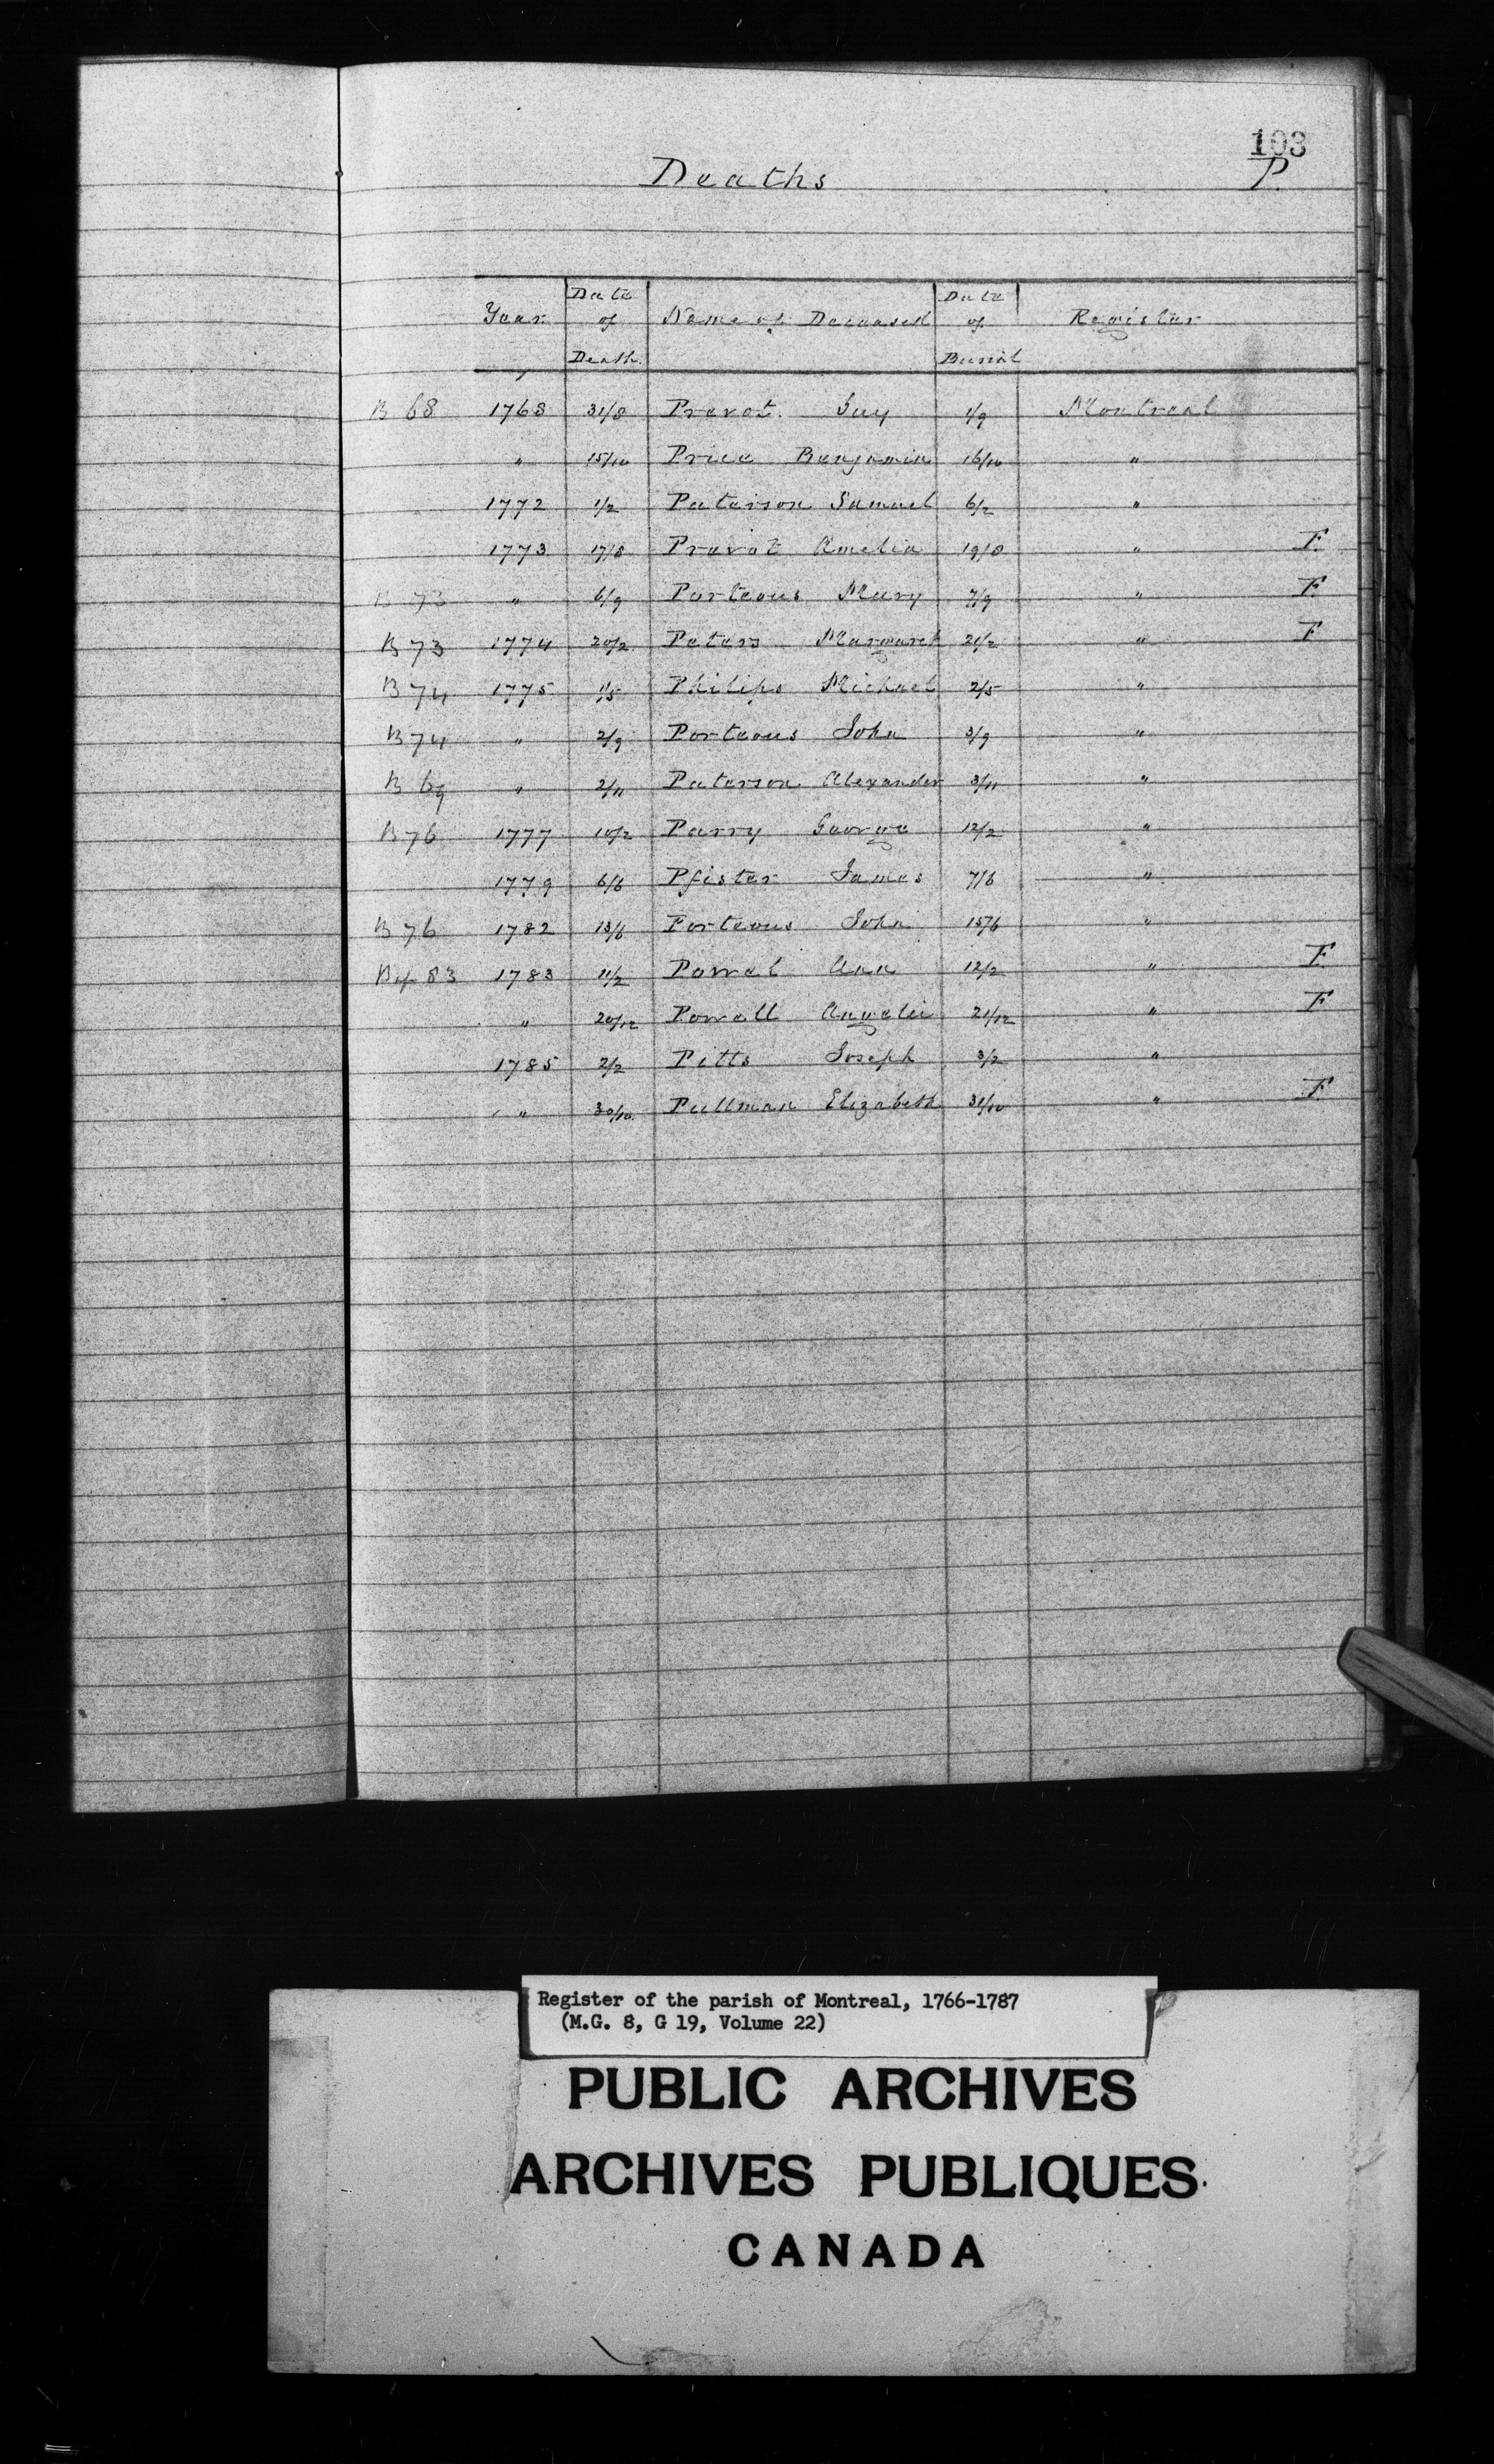 103
Deaths P.
Year Date of Death Name of Deceased Date of Burial Register
B 68 1768 31/8 Prevot. Guy 1/9 Montreal
" 15/10 Price Benjamin 16/10 "
1772 1/2 Paterson Samuel 6/2 "
1773 17/8 Prevot Amelia 19/8 " F.
B 73 " 6/9 Porteous Mary 7/9 " F.
B 73 1774 20/2 Peters Margaret 21/2 " F
B 74 1775 1/5 Philips Michael 2/5 "
B 74 " 2/9 Porteous John 3/9 "
B 69 " 2/11 Paterson Alexander 3/11 "
B 76 1777 10/2 Parry George 12/2 "
1779 6/6 Pfister James 7/6 "
B 76 1782 13/6 Porteous John 15/6 "
83 1783 11/2 Powel Ann 12/2 " F.
" 20/12 Powell 21/12 " F
1785 2/2 Pitts Joseph 3/2 "
" 30/10 Pullman Elizabeth 31/10 " F
Register of the parish of Montreal, 1766-1787
(M.G. 8, G 19, Volume 22)
PUBLIC ARCHIVES
ARCHIVES PUBLIQUES
CANADA